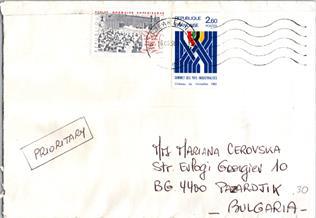 RÉPUBLIQUE
FRANÇAISE
2,60
POSTES
SOMMET DES PAYS INDUSTRIALISÉS
Château de Versailles 1982
PRIORITARY
MARIANA CEROVSKA
Str. Evlogi Georgiev 10
BG 4400 PAZARDJIK
- BULGARIA -
30